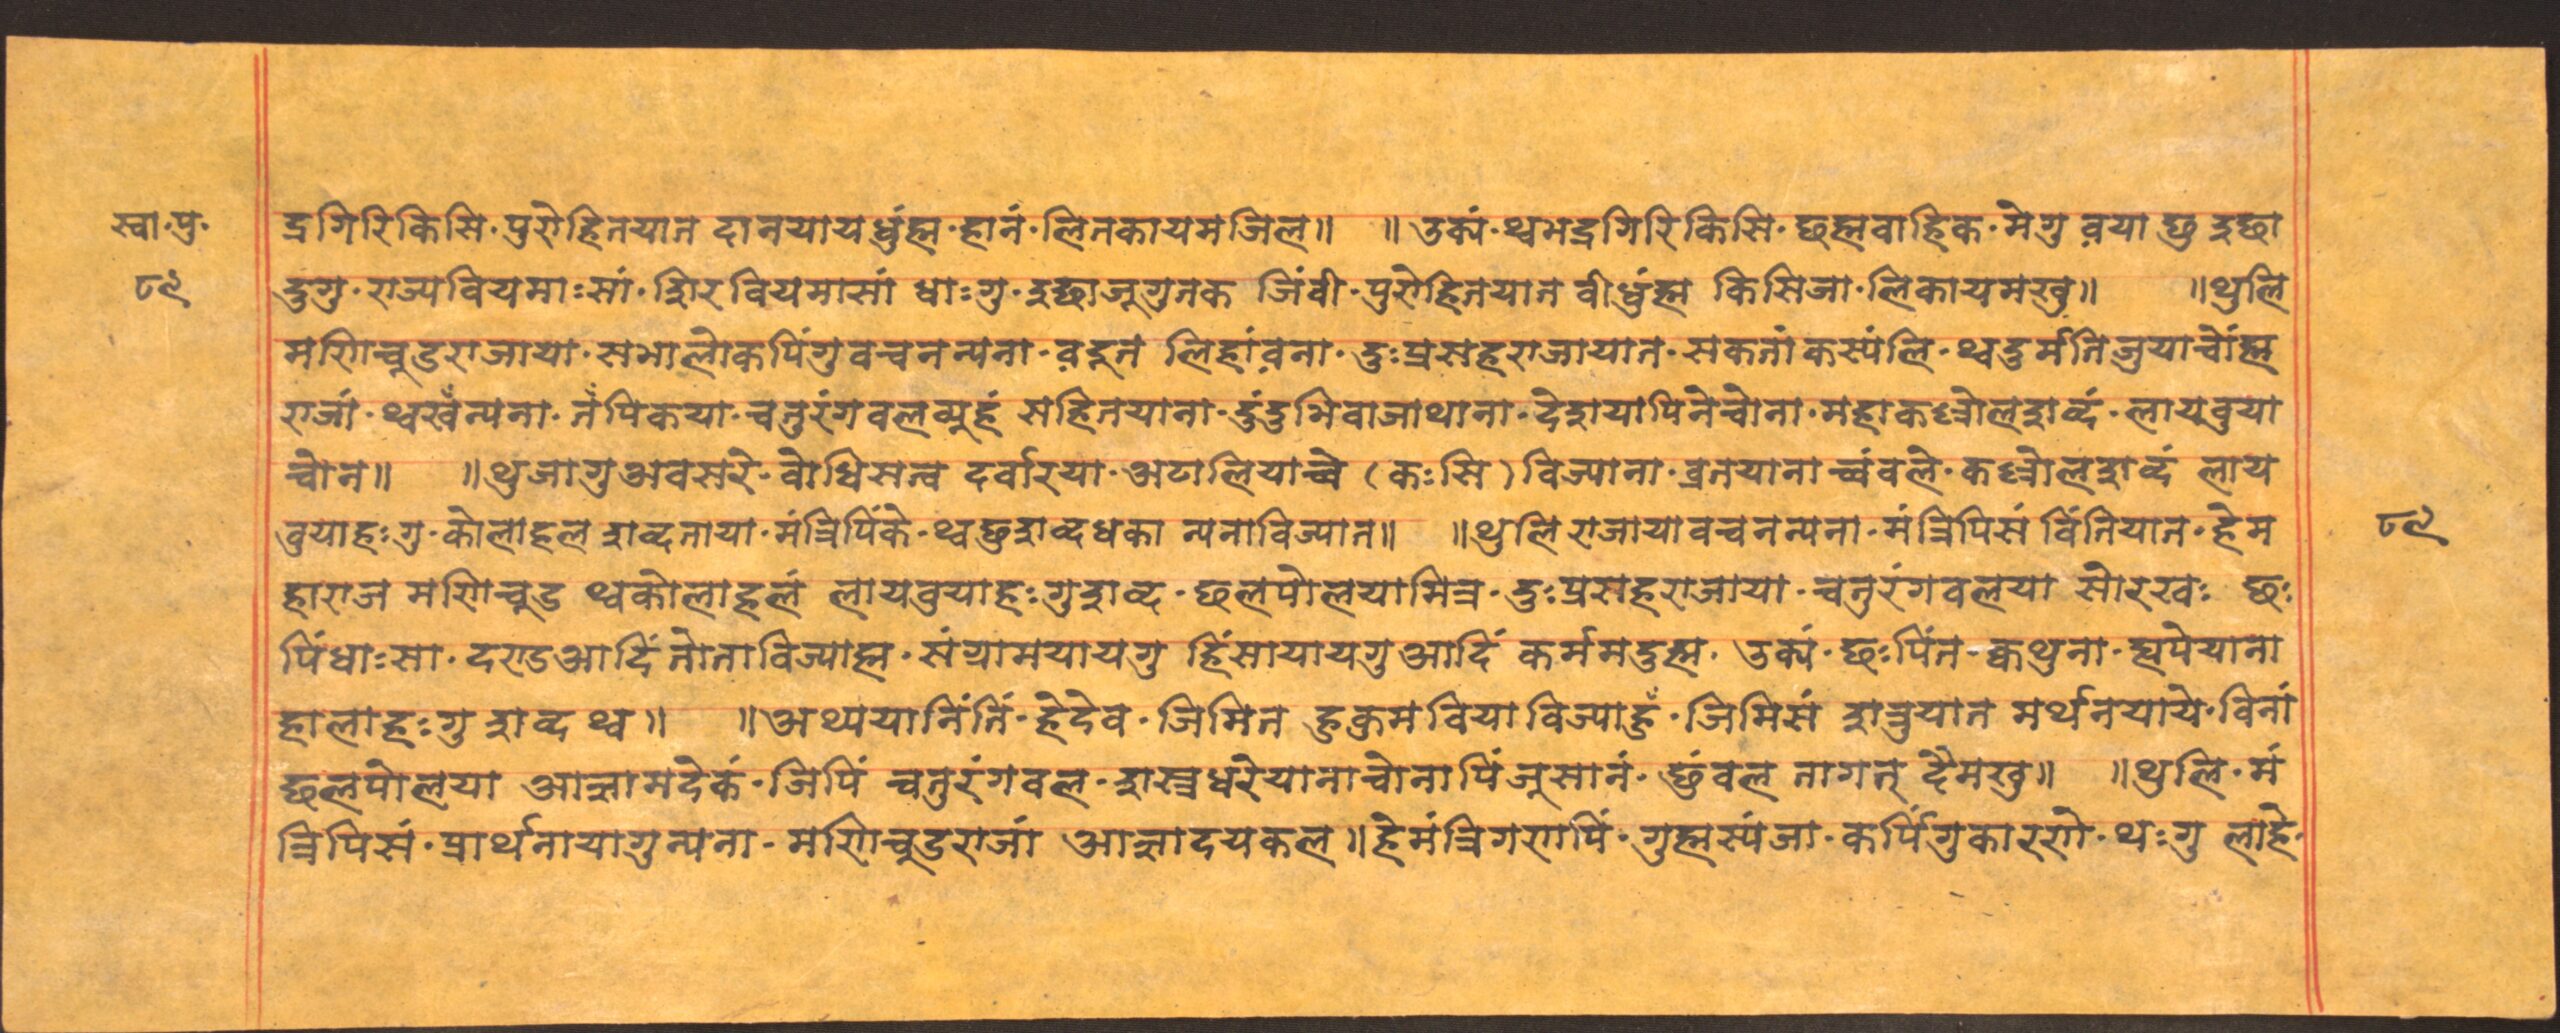 स्वा॰पु॰
८९
द्रगिरिकिसि॰पुरोहितयात दानयायधुंह्म॰हानं॰लितकायमजिल॥ ॥उक्यं॰थ्वभद्रगिरिकिसि॰छह्मवाहिक॰मेगु व़या छु इछा
दुगु॰राज्यवियमाःसां॰शिरवियमासां धाःगु॰इछाजूगुतक जिंवी॰पुरोहितयात वीधुंह्म किसिजा॰लिकायमखु॥ ॥थुलि
मणिचूडराजाया॰सभालोकपिंगुवचनन्यना॰व़दूत लिहांव़ना॰दुःप्रसहराजायात॰सकतांकस्यंलि॰थ्वदुर्मतिजुयाचोंह्म
राजां॰थ्वखँन्यना॰तँपिकया॰चतुरंगवलव्यूहं सहितयाना॰दुंदुभिवाजाथाना॰देशयापिनेचोना॰महाकल्लोलशव्दं॰लायवुया
चोन॥ ॥थुजागुअवसरे॰वोधिसत्व दर्वारया॰अटालियाच्वे (कःसि) विज्याना॰व्रतयानाच्वंवले॰कल्लोलशव्दं लाय
वुयाहःगु॰कोलाहल शव्दताया॰मंत्रिपिंके॰थ्वछुशव्दधका न्यनाविज्यात॥ ॥थुलि राजायावचनन्यना॰मंत्रिपिसं विंतियात॰हेम
हाराज मणिचूड थ्वकोलाहलं लायवुयाहःगुशव्द॰छलपोलयामित्र॰दुःप्रसहराजाया॰चतुरंगवलया सोरखः छः
पिंधाःसा॰दण्डआदिं तोताविज्याह्म॰संग्रामयायगु हिंसायायगुआदिं कर्ममदुह्म॰उक्यं॰छःपिंत॰क्वथुना॰ह्यपेयाना
हालाहःगु शव्द थ्व॥ ॥अथ्ययानिंतिं॰हेदेव॰जिमित हुकुमवियाविज्याहुँ॰जिमिसं शत्रुयात मर्थनयाये॰विनां
छलपोलया आज्ञामदेकं॰जिपिं चतुरंगवल॰शस्त्रधरेयानाचोनापिंजूसानं॰छुंवल तागत् दैमखु॥ ॥थुलि॰मं
त्रिपिसं॰प्रार्थनायागुन्यना॰मणिचूडराजां आज्ञादयकल॥हेमंत्रिगणपिं॰गुह्मस्यंजा॰कपिंगुकारणे॰थःगु लाहे॰
८९